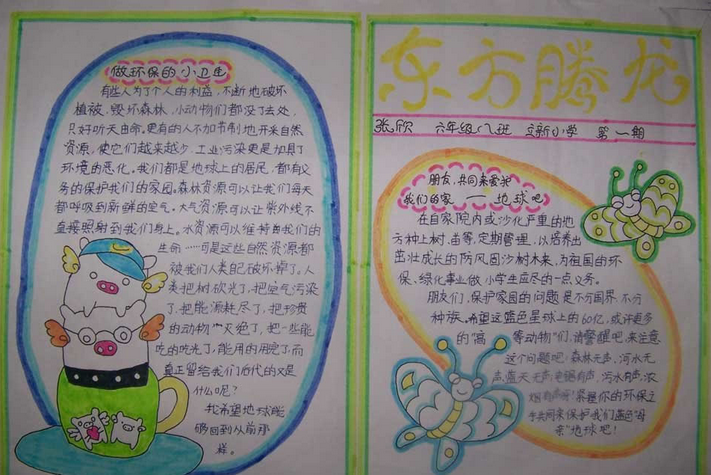 做环保的小卫士
有些人为了个人的利益,不断地破坏
植被,毁坏森林,小动物们都没了去处,
只好听天由命。更有的人不加节制地开采自然
资源,使它们越来越少。工业污染更是加具了
环境的恶化。我们都是地球上的居民,都有义
务的保护我们的家园。森林资源可以让我们每天
都呼吸到新鲜的空气。大气资源可以让紫外线不
直接照射到我们身上。水资源可以维持每我们的
生命……可是这些自然资源都
被我们人类能破坏掉了。人
类把树砍光了,把空气污染
了,把能源耗尽了,把珍贵
的动物"灭绝了,把一些能
吃的吃光了,能用的用完了,而
真正留给我们后代的又是
什么呢?
我希望地球能
够回到从前那
样。
东方腾龙
张欣 六年级八班 立新小学 第一期
朋友,共同来爱护
我们的家——地球吧
在自家院内或沙化严重的地
方种上树、苗等,定期管理,以培养出
茁壮成长的防风固沙树木来,为祖国的环
保、绿化事业做小学生应尽的一点义务。
朋友们,保护家园的问题是不分国界,不分
种族。希望这蓝色星球上的60亿,或许更多
的"高等动物"们,请警醒吧,来注意
这个问题吧!森林无声,河水无
声,蓝天无声,电锯有声,污水有声,浓
烟有声啊!掌握你的环保之
手共同来保护我们蓝色"母
亲"地球吧!